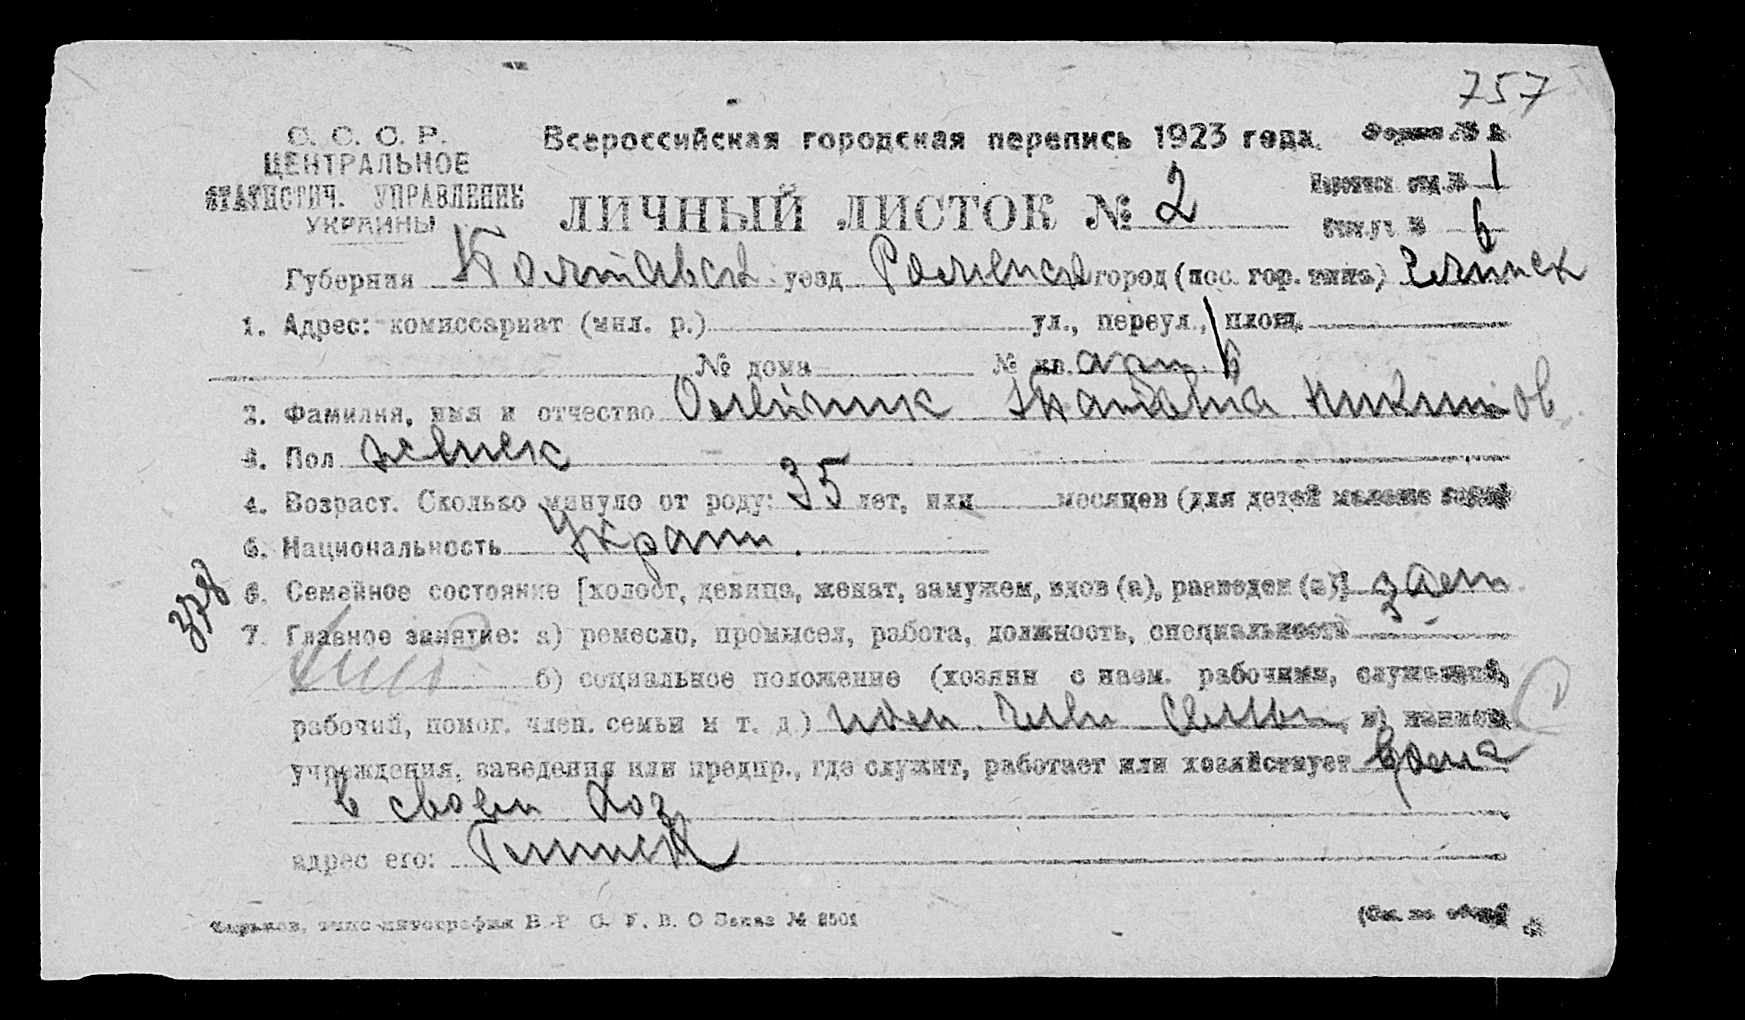 757
С. С. С. Р.
ЦЕНТРАЛЬНОЕ
СТАТИСТИЧ. УПРАВЛЕНИЕ
УКРАИНЫ
Всероссийская городская перепись 1923 года.
Форма № 2
ЛИЧНЫЙ ЛИСТОК № 2
отд. № 1
№ 6
Губерния Полтавск уезд Роменск город (пос. гор. типа)
1. Адрес: комиссариат (мил. р.) ул., переул., площ.
№ дома № кв.
2. Фамилия, имя и отчество Олейник Татьяна Никитов.
3. Пол женск
4. Возраст. Сколько минуло от роду: 35 лет, или месяцев (для детей
5. Национальность Украин.
6. Семейное состояние [холост, девица, женат, замужем, вдов (а), разведен (а)] зам
7. Главное занятие: а) ремесло, промысел, работа, должность, специальность
б) социальное положение (хозяин с наем. рабочими, служащий,
рабочий, помог. член. семьи и т. д.) член семьи
учреждения, заведения или предпр., где служит, работает или хозяйствует
в своем хоз
адрес его:
338
Заказ № 2501